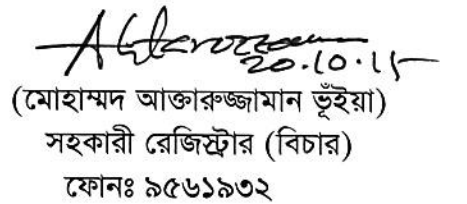 20.10.15
(মোহাম্মদ আক্তারুজ্জামান ভূঁইয়া)
সহকারী রেজিস্ট্রার (বিচার)
ফোনঃ ৯৫৬১৯৩২